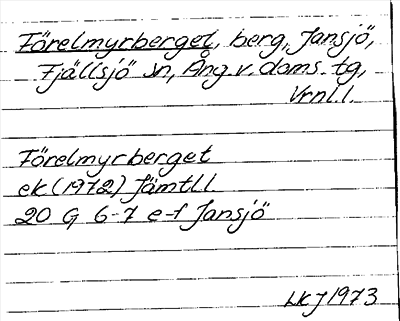 Förelmyrberget, berg, Jansjö,
Fjällsjö sn, Ång. v. doms. tg,
Vrnl.l.
Förelmyrberget
ek (1972) Jämtl.l.
20 G 6-7 e-f Jansjö
LKJ 1973